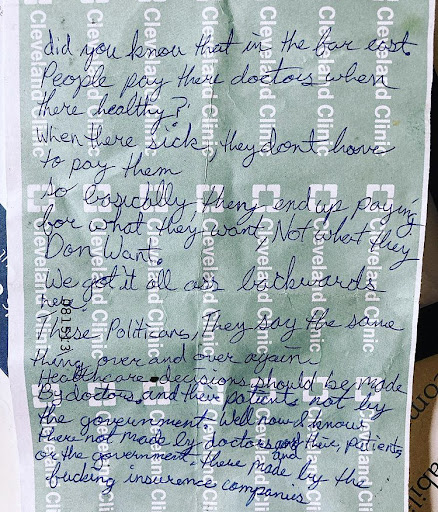 did you know that in the far east
People pay there doctors when
there healthy?
When there sick, they dont have
to pay them
So basically they end up paying
for what they want, Not what they
Don Want.
We got it all ass backwards
here.
These Politicans, They say the same
thing over and over again.
Healthcare decisions should be made
By doctors and their patients not by
the government. Well now I know
There not made by doctors and their patients,
or the government. There made by the
fucking insurence companies
Cleveland Clinic
081513